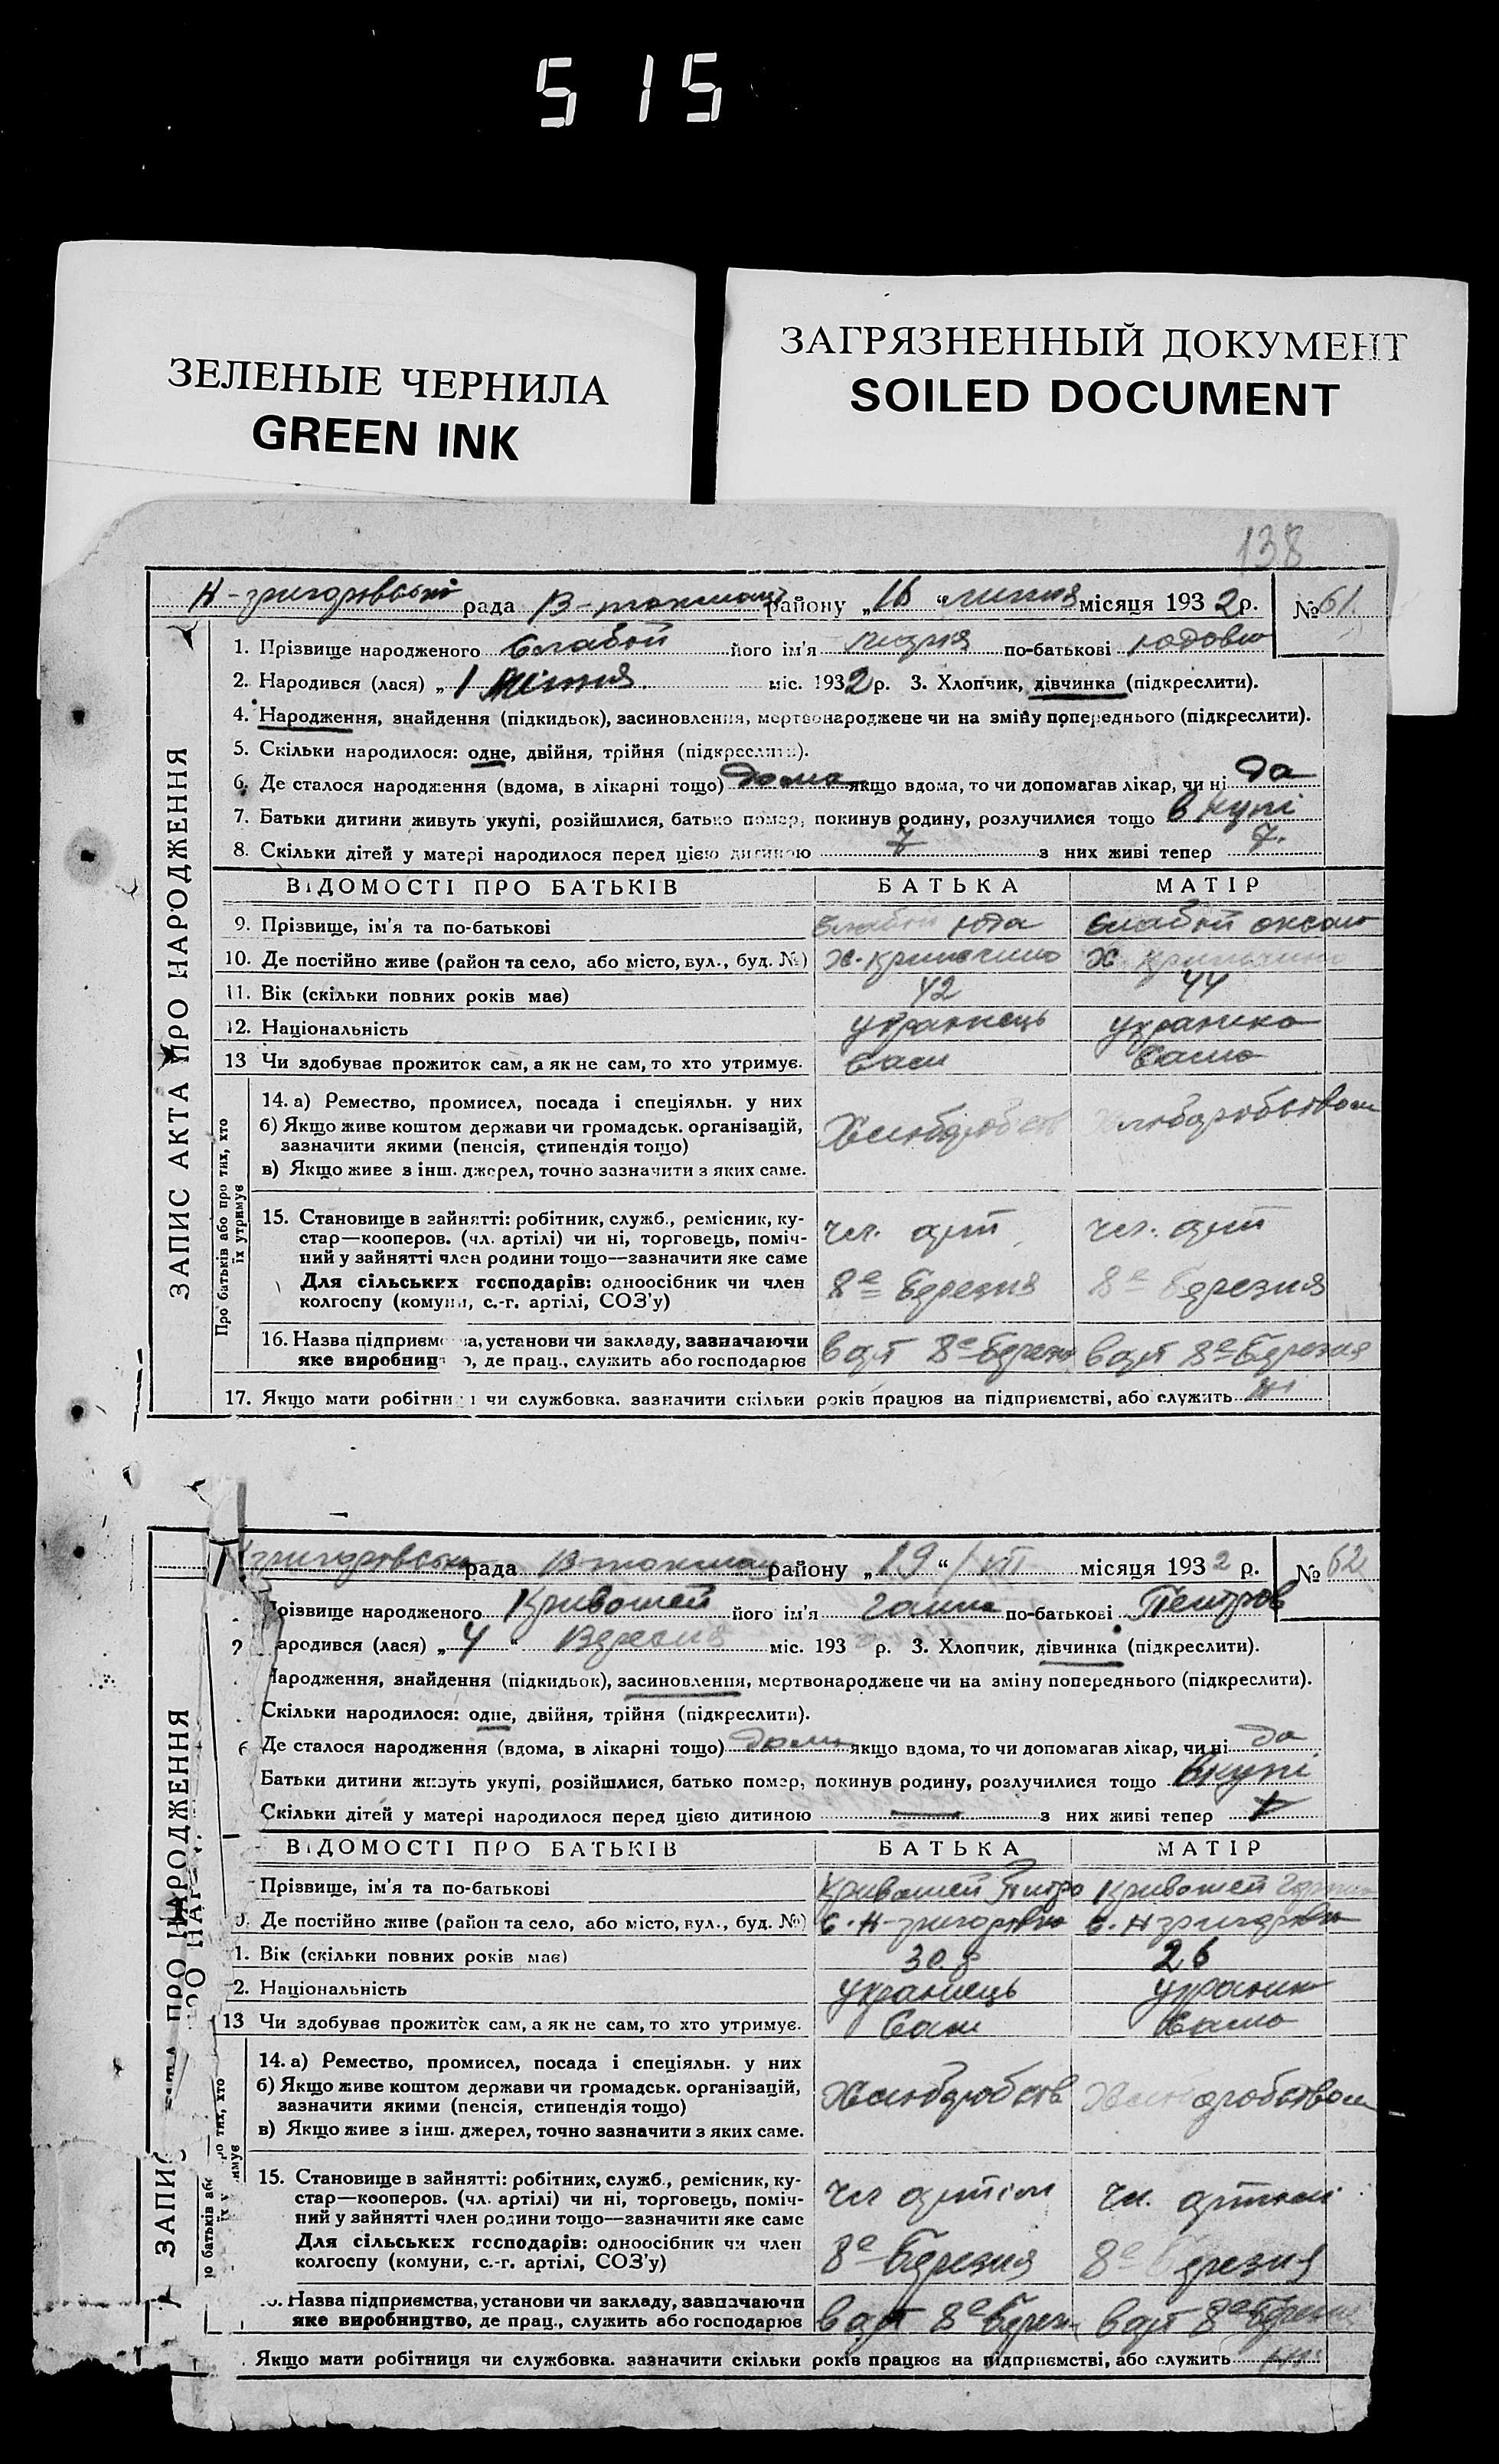 515
ЗЕЛЕНЫЕ ЧЕРНИЛА
GREEN INK
ЗАГРЯЗНЕННЫЙ ДОКУМЕНТ
SOILED DOCUMENT
138
рада В- району „16“ липня місяця 1932 р. № 61.
ЗАПИС АКТА ПРО НАРОДЖЕННЯ
1. Прізвище народженого Слабой його ім'я по-батькові Юдовна
2. Народився (лася) „1 міс. 1932 р. 3. Хлопчик, дівчинка (підкреслити).
4. Народження, знайдення (підкидьок), засиновлення, мертвонароджене чи на зміну попереднього (підкреслити).
5. Скільки народилося: одне, двійня, трійня (підкреслити).
6. Де сталося народження (вдома, в лікарні тощо) дома якщо вдома, то чи допомагав лікар, чи ні да
7. Батьки дитини живуть укупі, розійшлися, батько помер, покинув родину, розлучилися тощо вкупі
8. Скільки дітей у матері народилося перед цією дитиною 7 з них живі тепер 7.
ВІДОМОСТІ ПРО БАТЬКІВ БАТЬКА МАТІР
9. Прізвище, ім'я та по-батькові Слабой Юда Слабой
10. Де постійно живе (район та село, або місто, вул., буд. №) х. х.
11. Вік (скільки повних років має) 42 44
12. Національність українець українка
13 Чи здобуває прожиток сам, а як не сам, то хто утримує. Сам Сама
Про батьків або про тих, хто їх утримує
14. а) Ремество, промисел, посада і спеціяльн. у них
б) Якщо живе коштом держави чи громадськ. організацій,
зазначити якими (пенсія, стипендія тощо) Хліборобств Хліборобством
в) Якщо живе з інш. джерел, точно зазначити з яких саме.
15. Становище в зайнятті: робітник, служб., ремісник, ку-
стар—кооперов. (чл. артілі) чи ні, торговець, поміч- чл. арт чл. арт
ний у зайнятті член родини тощо—зазначити яке саме
Для сільських господарів: одноосібник чи член 8е Березня 8е Березня
колгоспу (комуни, с.-г. артілі, СОЗ'у)
16. Назва підприємства, установи чи закладу, зазначаючи
яке виробництво, де прац., служить або господарює в арт 8е Березн в арт 8е Березня
17. Якщо мати робітниця чи службовка. зазначити скільки років працює на підприємстві, або служить ні
рада В району „19“ VII місяця 1932 р. № 62
ЗАПИС ПРО НАРОДЖЕННЯ
Прізвище народженого Кривошей його ім'я Ганна по-батькові Петров
2 Народився (лася) „4“ Березня міс. 193 р. 3. Хлопчик, дівчинка (підкреслити).
Народження, знайдення (підкидьок), засиновлення, мертвонароджене чи на зміну попереднього (підкреслити).
Скільки народилося: одне, двійня, трійня (підкреслити).
6 Де сталося народження (вдома, в лікарні тощо) дома якщо вдома, то чи допомагав лікар, чи ні да
Батьки дитини живуть укупі, розійшлися, батько помер, покинув родину, розлучилися тощо Вкупі
Скільки дітей у матері народилося перед цією дитиною — з них живі тепер
ВІДОМОСТІ ПРО БАТЬКІВ БАТЬКА МАТІР
Прізвище, ім'я та по-батькові Кривошей Петро Кривошей
0. Де постійно живе (район та село, або місто, вул., буд. №) с. с.
1. Вік (скільки повних років має) 30 26
2. Національність українець українк
13 Чи здобуває прожиток сам, а як не сам, то хто утримує. Сам Сама
14. а) Ремество, промисел, посада і спеціяльн. у них
б) Якщо живе коштом держави чи громадськ. організацій,
зазначити якими (пенсія, стипендія тощо) Хліборобств Хліборобством
в) Якщо живе з інш. джерел, точно зазначити з яких саме.
15. Становище в зайнятті: робітник, служб., ремісник, ку-
стар—кооперов. (чл. артілі) чи ні, торговець, поміч- чл чл.
ний у зайнятті член родини тощо—зазначити яке саме
Для сільських господарів: одноосібник чи член 8е Березня 8е Березня
колгоспу (комуни, с.-г. артілі, СОЗ'у)
Назва підприємства, установи чи закладу, зазначаючи
яке виробництво, де прац., служить або господарює в арт 8е Березн в арт 8е Березн
Якщо мати робітниця чи службовка. зазначити скільки років працює на підприємстві, або служить